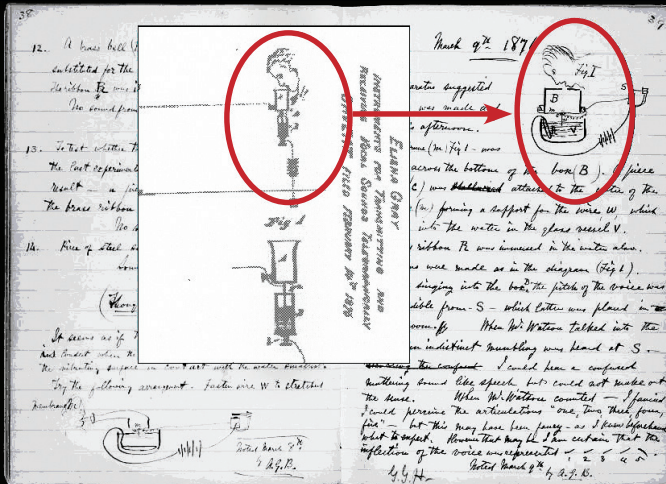 38
12. A brass bell (
substituted for the
The ribbon R was i
No sound from
13. To test whether th
the last experiment
result – a pie
the brass ribbon
No s
14. Piece of steel s
(Thoug
It seems as if t
the vibrating surface in contact with the water
Try the following arrangement. Fasten wire W to stretched
membrane
Noted March 8th
by A.G.B.
ELISHA GRAY
INSTRUMENTS FOR TRANSMITTING AND
RECEIVING VOCAL SOUNDS TELEGRAPHICALLY
CAVEAT FILED FEBRUARY 14th 1876
Fig 1
March 9th 187
Fig I
B
S
V
aratus suggested
was made and
s afternoon.
(m) Fig 1 – was
across the bottom of the box (B). A piece
C) was attached to the centre of the
(m) forming a support for the wire W, which
into the water in the glass vessel V.
ribbon R was immersed in the water also.
s were made as in the diagram (Fig 1).
singing into the box, the pitch of the voice was
dible from – S – which latter was placed in
room. When Mr Watson talked into the
an indistinct mumbling was heard at S.
I could hear a confused
muttering sound like speech but could not make out
the sense. When Mr Watson counted – I fancied
I could perceive the articulations "one, two, three, four,
five" – but this may have been fancy – as I knew beforehand
what to expect. However that may be I am certain that the
inflection of the voice was represented 1 2 3 4 5
G.G.H.
Noted March 9th by A.G.B.